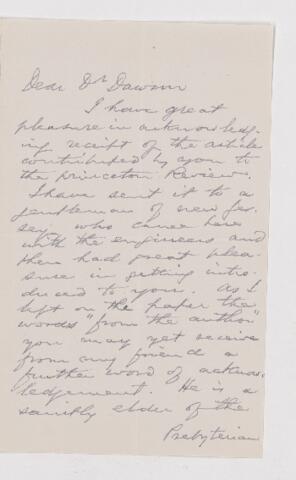 Dear Dr Dawson
I have great
pleasure in acknowledg-
ing receipt of the article
contributed by you to
the Princeton Review.
I have sent it to a
gentleman of New Jer-
sey, who came here
with the engineers and
then had great plea-
sure in getting intro-
duced to you. As I
left on the paper the
words "from the author"
you may yet receive
from my friend a
further word of acknow-
ledgement. He is a
saintly elder of the
Presbyterian